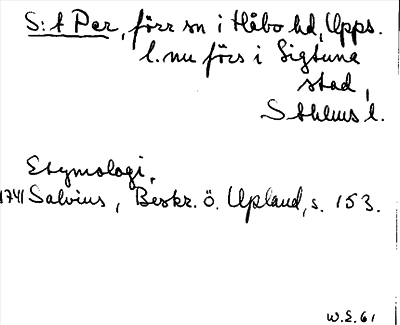 S:t Per, förr sn i Håbo hd, Upps.
l. nu förs i Sigtuna
stad,
Sthlms l.
Etymologi.
1741 Salvius, Beskr. ö. Upland, s. 153.
W.E. 61